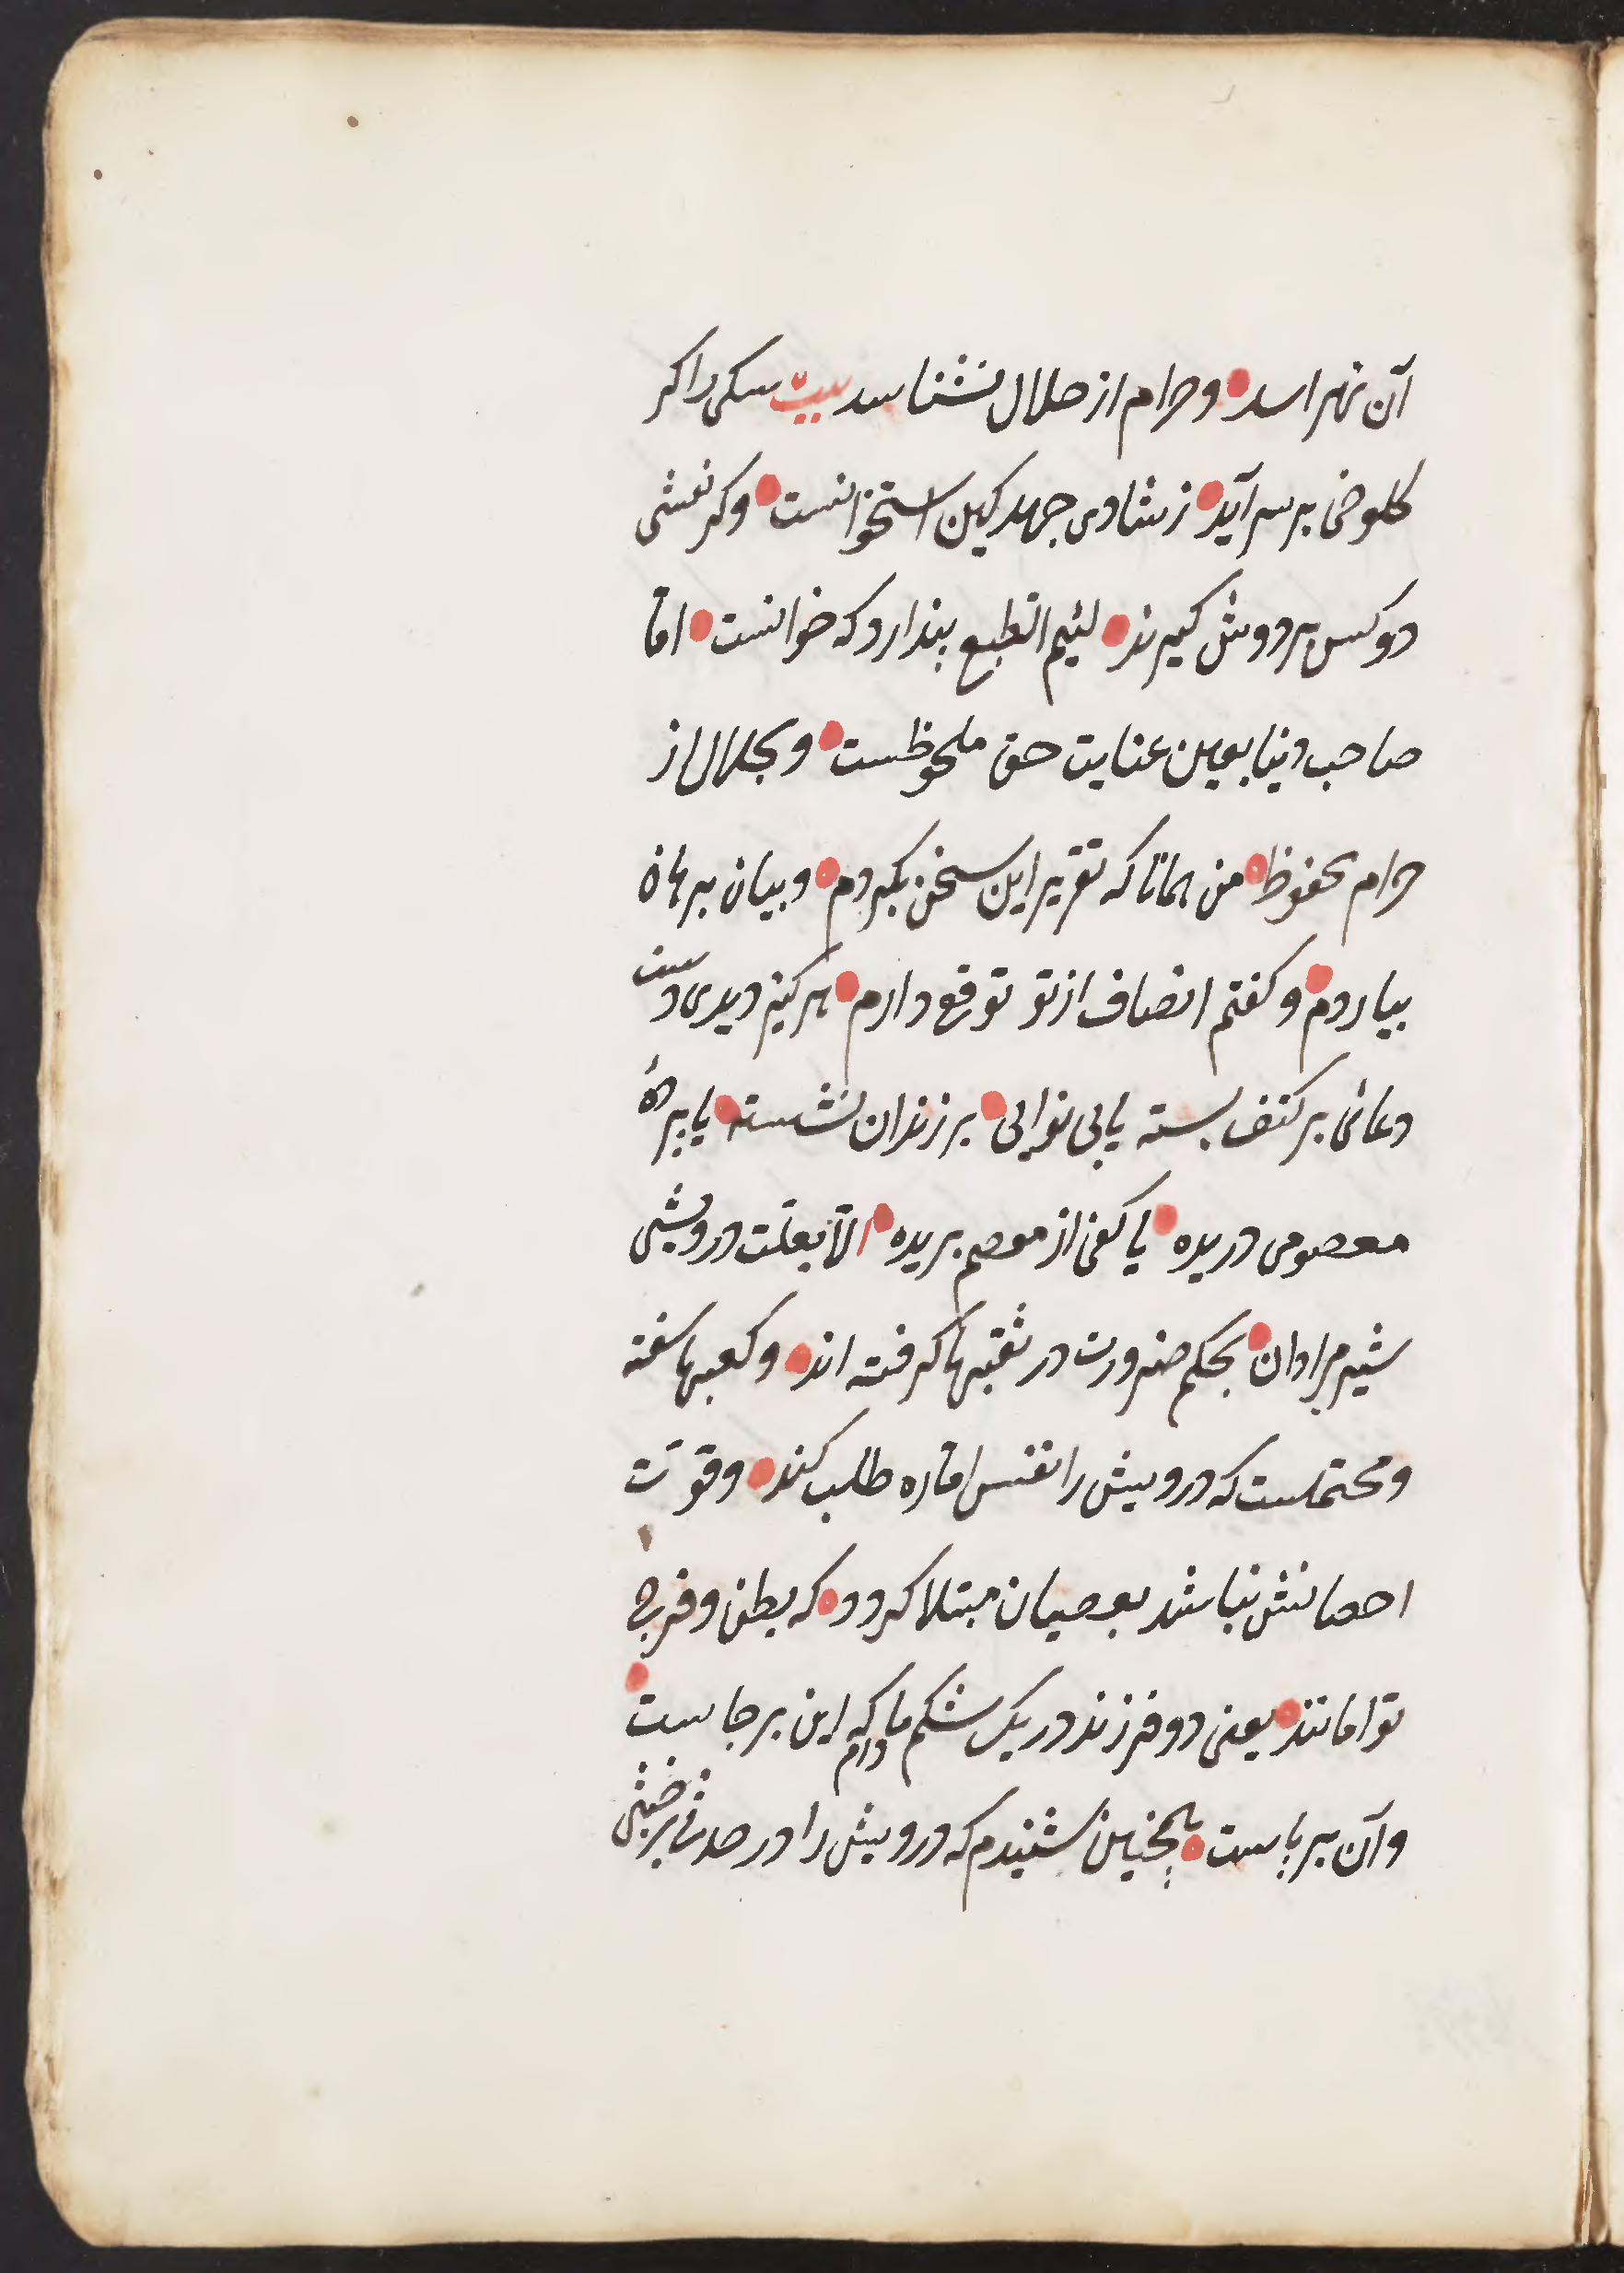 آن نهراسد و حرام از حلال نشناسد بیت سکی را کر
کلوخی بر سر آید ز شادی جهد کین استخوانست و کر نعشی
دو کس بر دوش کیرند لئیم الطبع پندارد که خوانست اما
صاحب دنیا بعین عنایت حق ملحوظست و بحلال از
حرام محفوظ من همانا که تقریر این سخن بکردم و بیان برهان
بیاردم و کفتم انصاف از تو توقع دارم هرکیز دیدی دست
دعائی بر کتف بسته یا بی نوایی بر زندان نشسته یا پردهٔ
معصومی دریده یا کفی از معصم بریده الا بعلت درویشی
شیر مرادان بحکم ضرورت در نقبها کرفته اند و کعبها سفته
و محتملست که درویش را نفس اماره طلب کند و قوت
احصانش نباشد بعصیان مبتلا کردد که بطن و فرج
توامانند یعنی دو فرزند در یک شکم مادام که این بر جاست
و آن بر پاست همچنین شنیدم که درویش را در حدثی بر خبثی